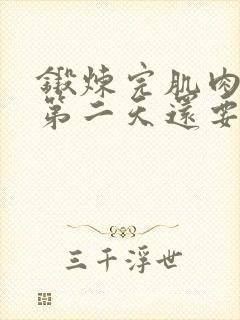 鍛炼完肌肉
第二天還要
三千浮世